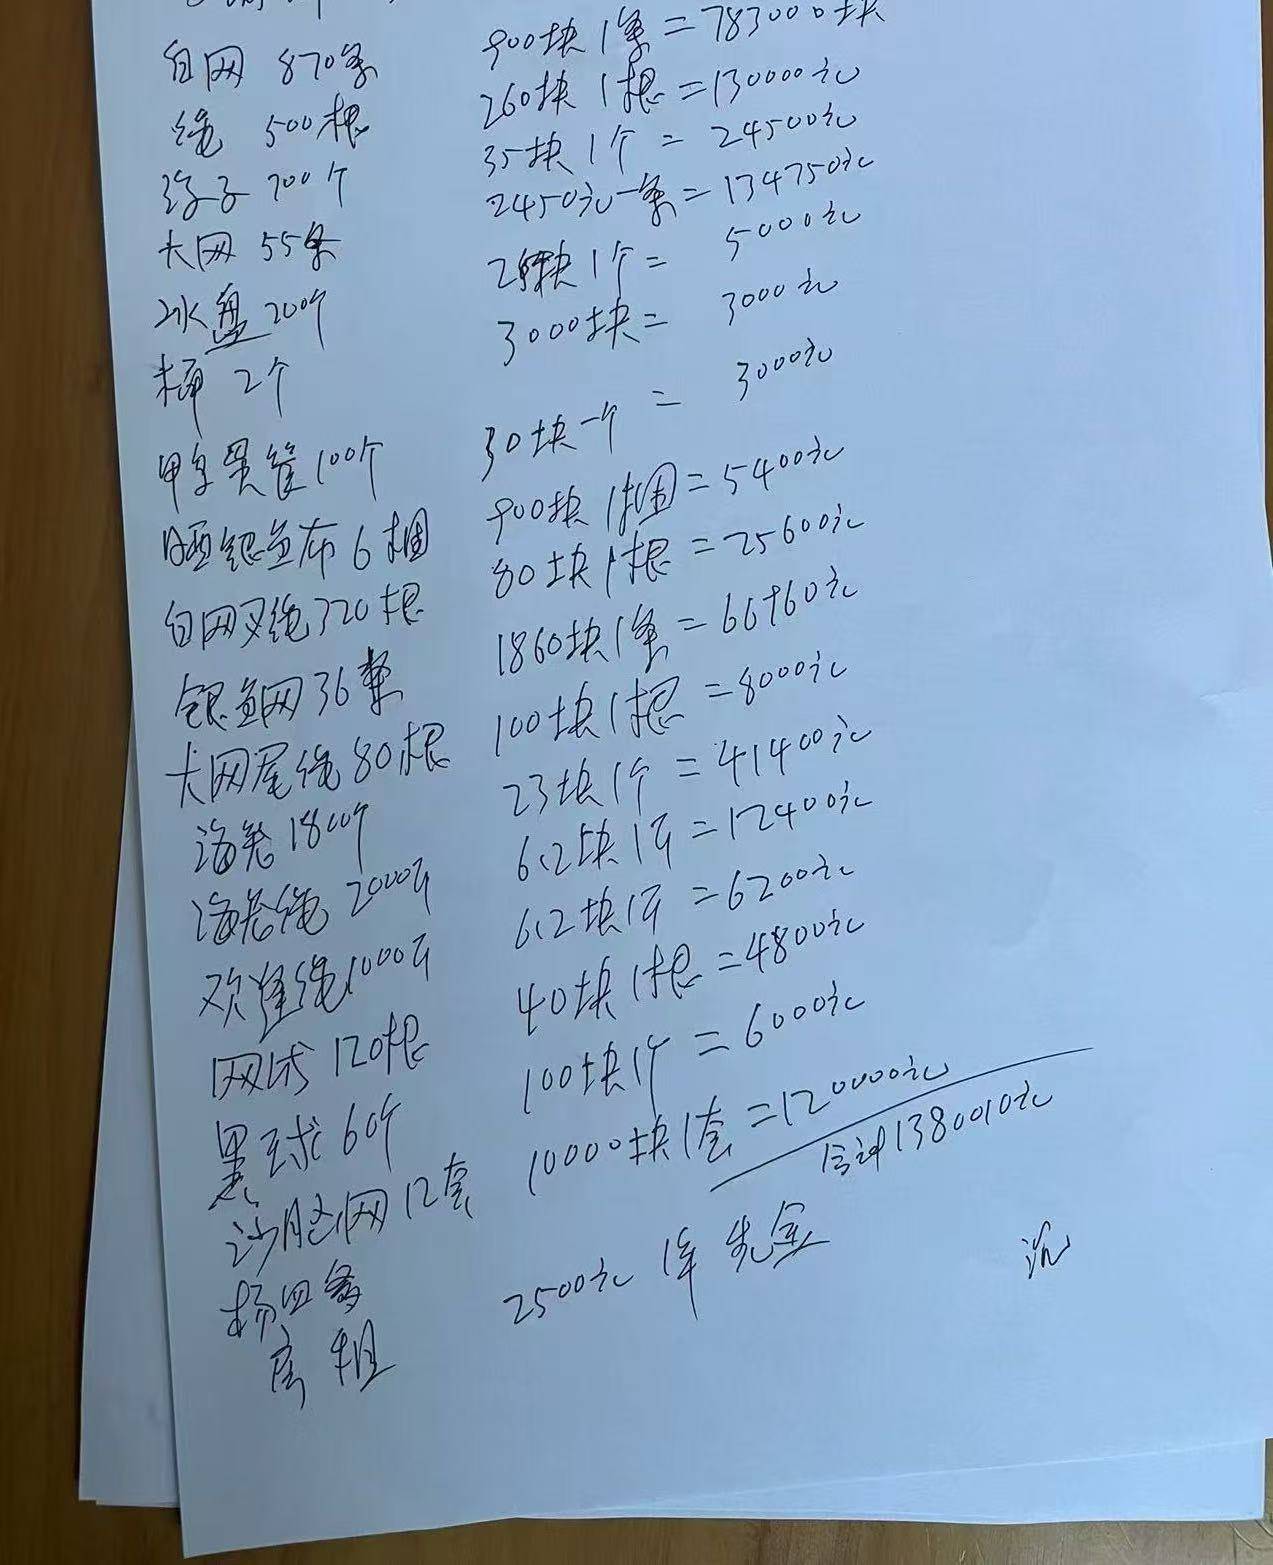 白网 870条 900块1条=783000块
绳 500根 260块1根=130000元
浮子 700个 35块1个=24500元
大网 55条 2450元一条=134750元
冰盘 200个 25块1个=5000元
桶 2个 3000块=3000元
鸭蛋篮100个 30块一个=3000元
晒银鱼布6捆 900块1捆=5400元
白网叉绳320根 80块1根=25600元
银鱼网36条 1860块1条=66960元
大网尾绳80根 100块1根=8000元
海卷1800个 23块1个=41400元
海卷绳2000斤 6.2块1斤=12400元
绳1000斤 6.2块1斤=6200元
网 120根 40块1根=4800元
黑球60个 100块1个=6000元
网12套 10000块1套=120000元
合计1380010元
杨四 2500元 1年
房租